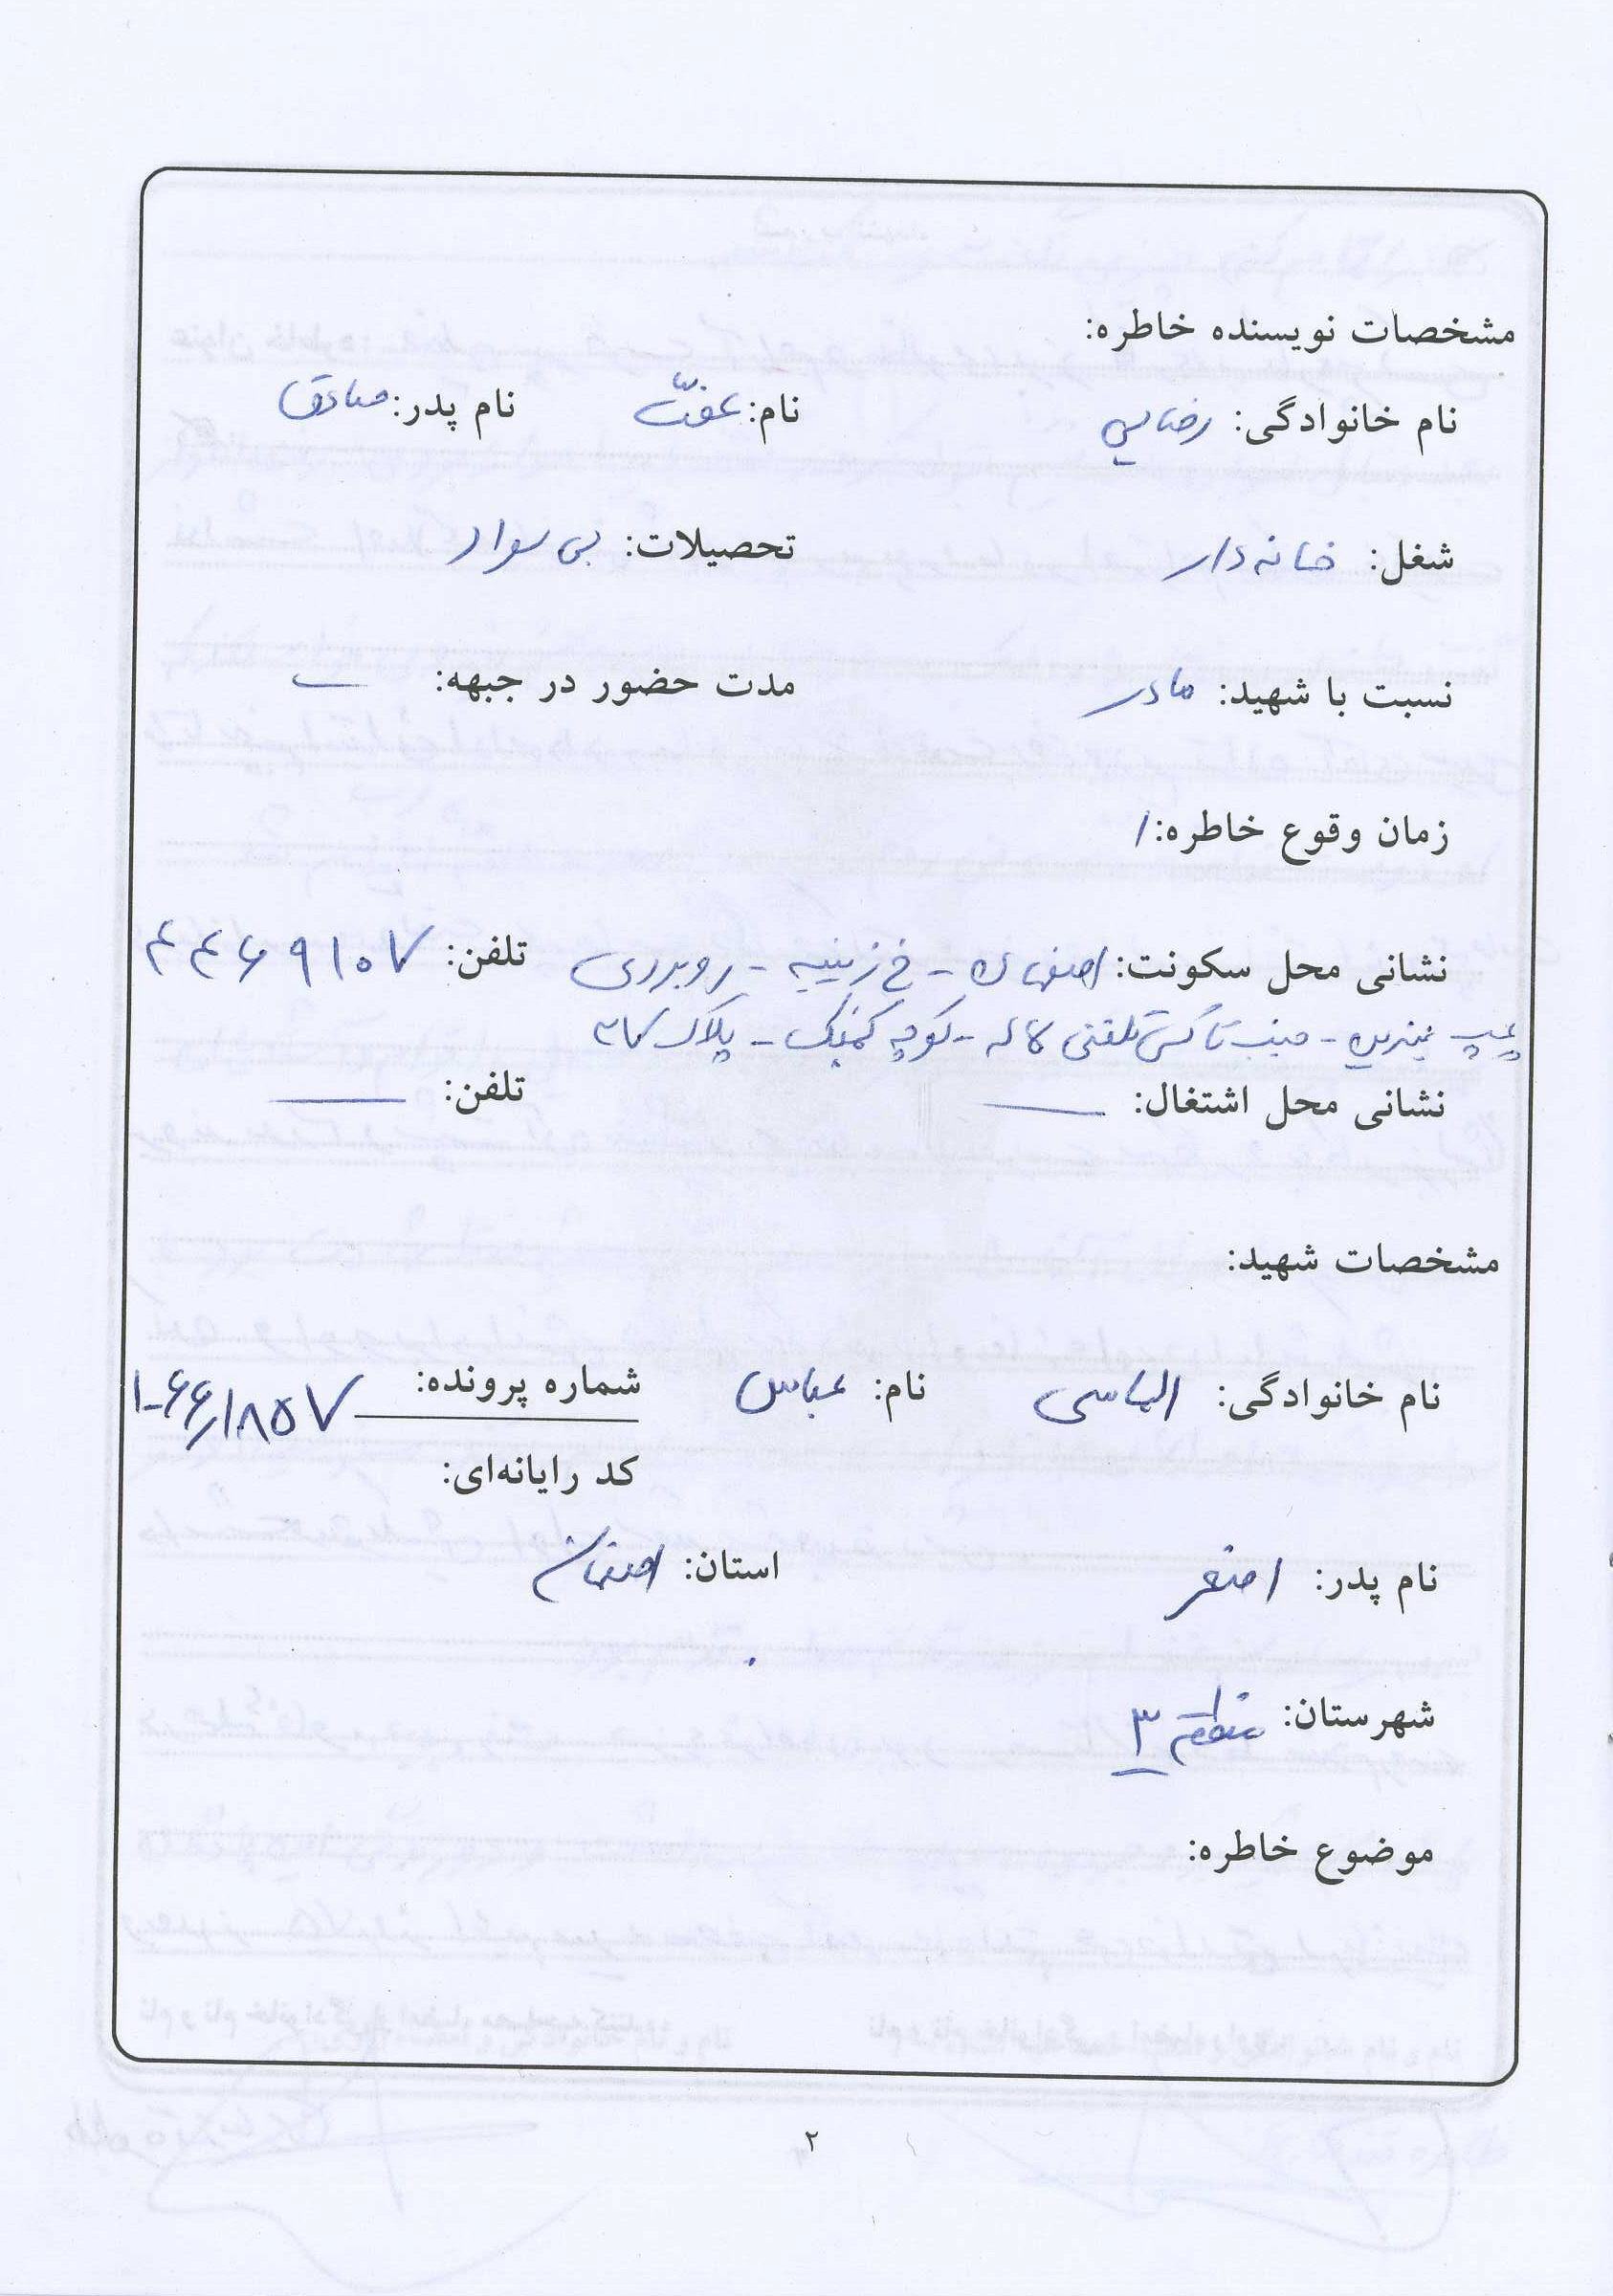 مشخصات نویسنده خاطره:
نام خانوادگی: رضایی نام: عفّت نام پدر: صادق
شغل: خانه دار تحصیلات: بی سواد
نسبت با شهید: مادر مدت حضور در جبهه: —
زمان وقوع خاطره: /
نشانی محل سکونت: اصفهان - خ زینبیه - روبروی تلفن: ۴۴۶۹۱۰۷
پمپ بنزین - جنب تاکسی تلفنی لاله - کوچه - پلاک
نشانی محل اشتغال: — تلفن: —
مشخصات شهید:
نام خانوادگی: الیاسی نام: عباس شماره پرونده:
کد رایانه‌ای:
نام پدر: اصغر استان: اصفهان
شهرستان: منطقه ۳
موضوع خاطره:
۲